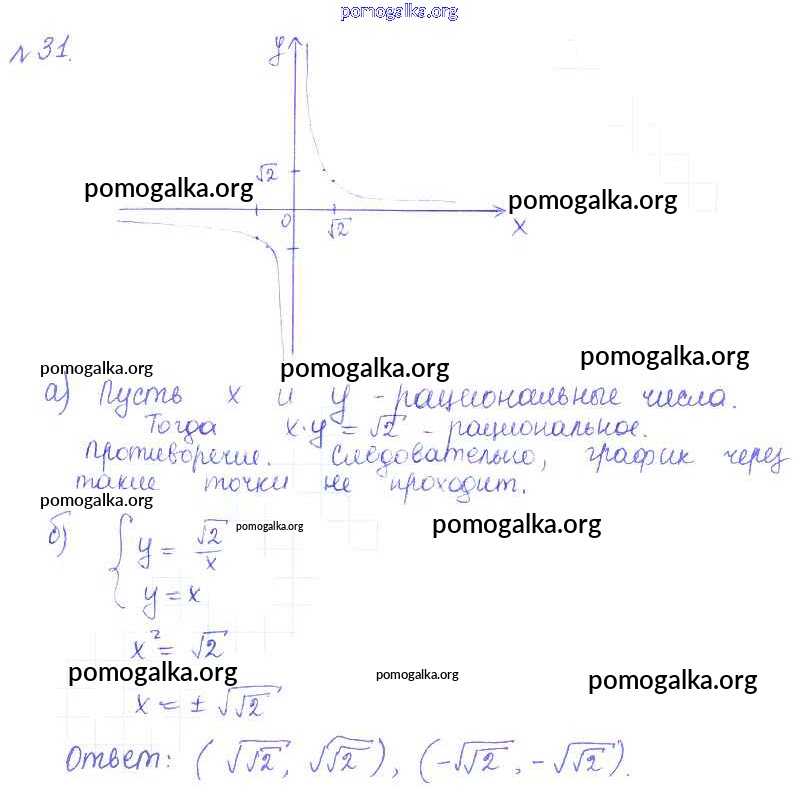 pomogalka.org
№ 31.
y
√2
pomogalka.org
pomogalka.org
0
√2
x
pomogalka.org
pomogalka.org
pomogalka.org
а) Пусть x и y - рациональные числа.
Тогда x·y = √2 - рациональное.
Противоречие. Следовательно, график через
такие точки не проходит.
pomogalka.org
pomogalka.org
pomogalka.org
б) { y = √2/x
y = x
x² = √2
pomogalka.org
pomogalka.org
pomogalka.org
x = ± √√2
Ответ: (√√2, √√2), (-√√2, -√√2).